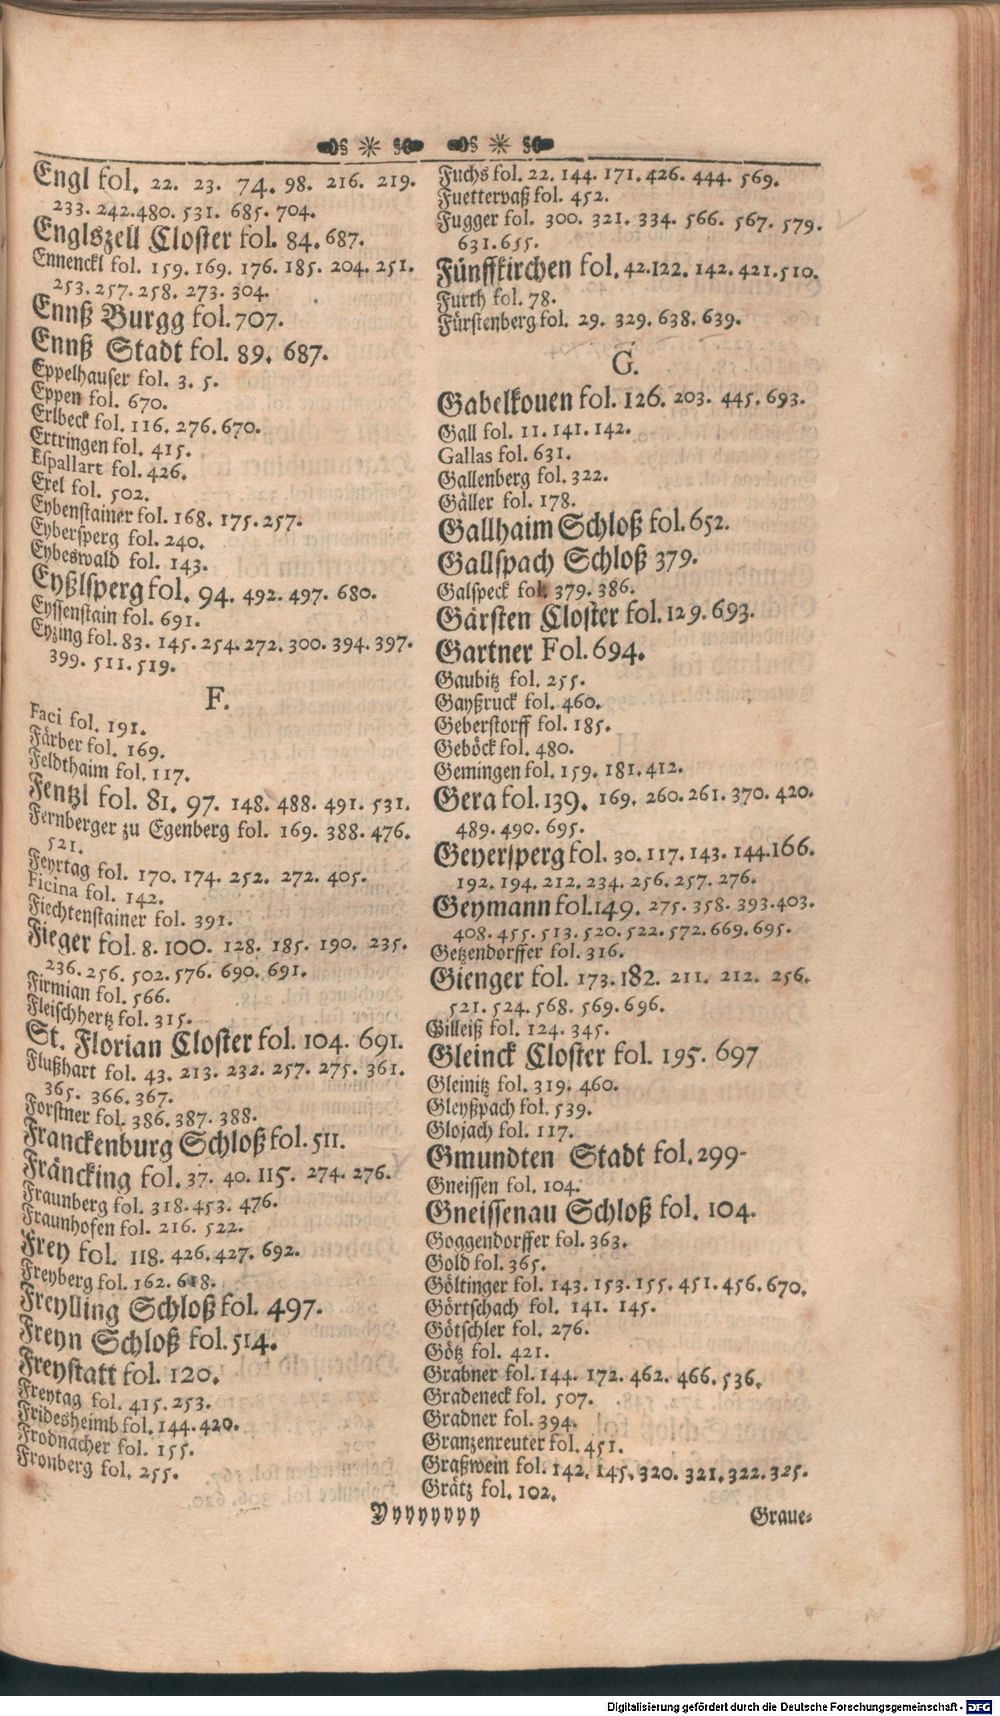 Engl fol. 22. 23. 74. 98. 216. 219.
233. 242. 480. 531. 685. 704.
Englszell Closter fol. 84. 687.
Ennenckl fol. 159. 169. 176. 185. 204. 251.
253. 257. 258. 273. 304.
Ennß Burgg fol. 707.
Ennß Stadt fol. 89. 687.
Eppelhauser fol. 3. 5.
Eppen fol. 670.
Erlbeck fol. 116. 276. 670.
Ertringen fol. 415.
Espallart fol. 426.
Exel fol. 502.
Eybenstainer fol. 168. 175. 257.
Eybersperg fol. 240.
Eybeswald fol. 143.
Eyßlsperg fol. 94. 492. 497. 680.
Eyssenstain fol. 691.
Eyzing fol. 83. 145. 254. 272. 300. 394. 397.
399. 511. 519.
F.
Faci fol. 191.
Färber fol. 169.
Feldthaim fol. 117.
Fentzl fol. 81. 97. 148. 488. 491. 531.
Fernberger zu Egenberg fol. 169. 388. 476.
521.
Feyrtag fol. 170. 174. 252. 272. 405.
Ficina fol. 142.
Fiechtenstainer fol. 391.
Fieger fol. 8. 100. 128. 185. 190. 235.
236. 256. 502. 576. 690. 691.
Firmian fol. 566.
Fleischhertz fol. 315.
St. Florian Closter fol. 104. 691.
Flußhart fol. 43. 213. 232. 257. 275. 361.
365. 366. 367.
Forstner fol. 386. 387. 388.
Franckenburg Schloß fol. 511.
Fräncking fol. 37. 40. 115. 274. 276.
Fraunberg fol. 318. 453. 476.
Fraunhofen fol. 216. 522.
Frey fol. 118. 426. 427. 692.
Freyberg fol. 162. 618.
Freylling Schloß fol. 497.
Freyn Schloß fol. 514.
Freystatt fol. 120.
Freytag fol. 415. 253.
Fridesheimb fol. 144. 420.
Frodnacher fol. 155.
Fronberg fol. 255.
Fuchs fol. 22. 144. 171. 426. 444. 569.
Fuettervaß fol. 452.
Fugger fol. 300. 321. 334. 566. 567. 579.
631. 655.
Fünffkirchen fol. 42. 122. 142. 421. 510.
Furth fol. 78.
Fürstenberg fol. 29. 329. 638. 639.
G.
Gabelkouen fol. 126. 203. 445. 693.
Gall fol. 11. 141. 142.
Gallas fol. 631.
Gallenberg fol. 322.
Gäller fol. 178.
Gallhaim Schloß fol. 652.
Gallspach Schloß 379.
Galspeck fol. 379. 386.
Gärsten Closter fol. 129. 693.
Gartner Fol. 694.
Gaubitz fol. 255.
Gayßruck fol. 460.
Geberstorff fol. 185.
Geböck fol. 480.
Gemingen fol. 159. 181. 412.
Gera fol. 139. 169. 260. 261. 370. 420.
489. 490. 695.
Geyersperg fol. 30. 117. 143. 144. 166.
192. 194. 212. 234. 256. 257. 276.
Geymann fol. 149. 275. 358. 393. 403.
408. 455. 513. 520. 522. 572. 669. 695.
Getzendorffer fol. 316.
Gienger fol. 173. 182. 211. 212. 256.
521. 524. 568. 569. 696.
Gilleiß fol. 124. 345.
Gleinck Closter fol. 195. 697
Gleinitz fol. 319. 460.
Gleyßpach fol. 539.
Glojach fol. 117.
Gmundten Stadt fol. 299-
Gneissen fol. 104.
Gneissenau Schloß fol. 104.
Goggendorffer fol. 363.
Gold fol. 365.
Göltinger fol. 143. 153. 155. 451. 456. 670.
Görtschach fol. 141. 145.
Götschler fol. 276.
Götz fol. 421.
Grabner fol. 144. 172. 462. 466. 536.
Gradeneck fol. 507.
Gradner fol. 394.
Granzenreuter fol. 451.
Graßwein fol. 142. 145. 320. 321. 322. 325.
Grätz fol. 102.
Yyyyyyyy
Graue-
Digitalisierung gefördert durch die Deutsche Forschungsgemeinschaft - DFG